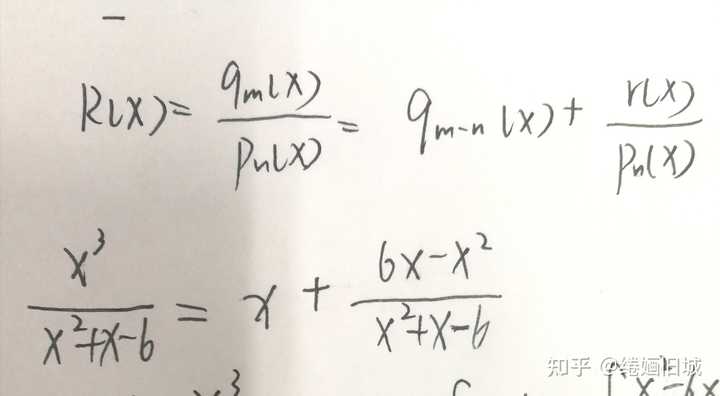 R(x) = q_m(x) / p_n(x) = q_{m-n}(x) + r(x) / p_n(x)
x^3 / (x^2+x-6) = x + (6x-x^2) / (x^2+x-6)
知乎 @绻婳旧城